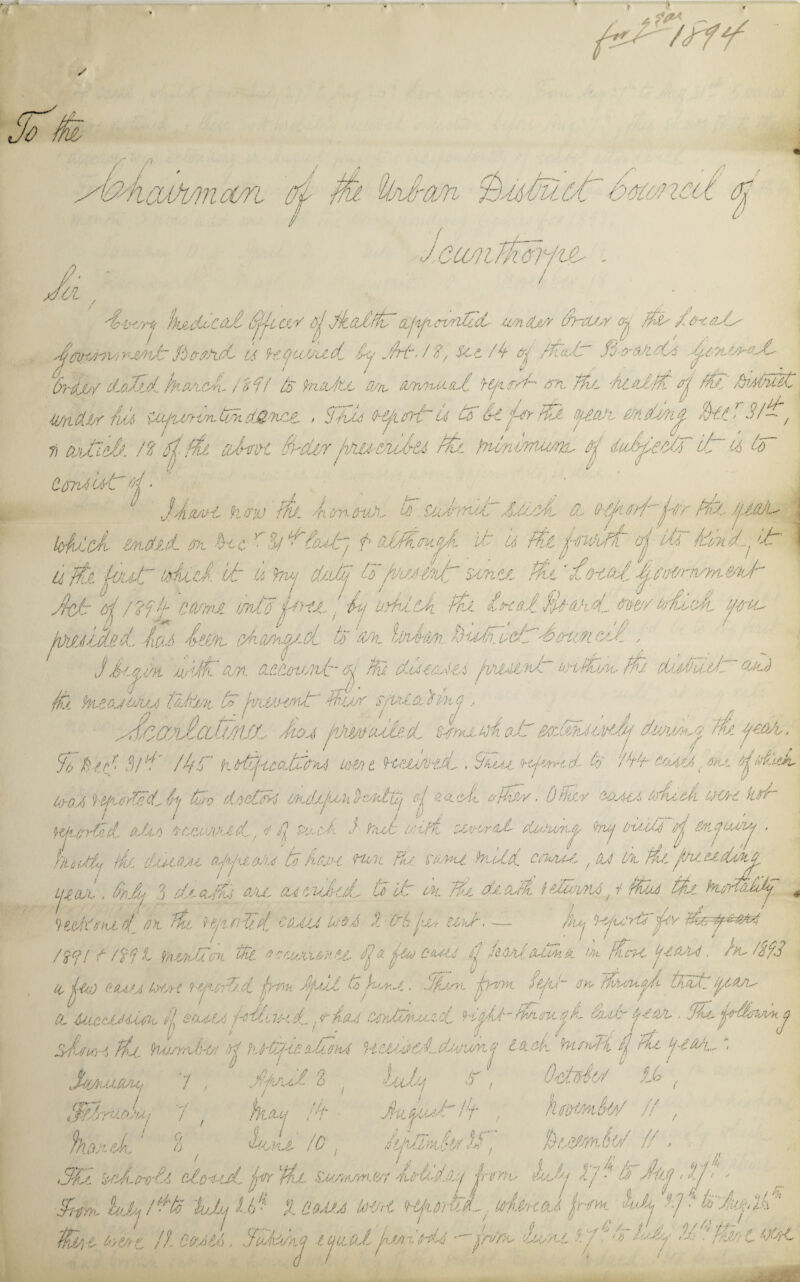 for year 1894
To the
Chairman of the Urban District Council of
Scunthorpe.
Sir,
Every Medical Officer of Health appointed under Order of the Local
Government Board is required by Art. 18, Sec 14 of that Board's General
Order dated March 1891 to make an annual report on the health of the District
under his superintendence. This report is to be for the year ending Decr 31st,
& article 18 of the above Order prescribes the minimum of subjects it is to
consist of.
I have now the honour to submit such a report for the year
which ended on Decr 31st last, & although it is the fourth of its kind, it
is the first which it is my duty to present since the "Local Government
Act of 1894" came into force, by which the Local Board over which you
presided has been changed to an Urban District Council.
I begin with an account of the diseases present within the district and
the measures taken to prevent their spreading.
Scarlatina has prevailed somewhat extensively during the year.
To Decr 31st 145 notifications were received. These referred to 144 cases, one of which
was reported by two doctors independently of each other. Other cases which were not
reported also occurred, & of such I met with several during my visits of enquiry.
Mostly the disease appears to have run the same mild course, as in the preceding
year. Only 3 deaths are ascribed to it in the death returns, & thus the mortality
reckoned on the reported cases was 2.06 per cent. — My reports for the years
1891 & 1892 mention the occurrence of a few cases of Scarlatina in those years. In 1893
a few cases were reported from April to June. Then from Sept on through that year
a succession of cases followed, & has continued right through last year. The following
shows the number of notifications received during each month of the year:
January 7, April 8, July 5, October 26,
February 7, May 14, August 14, November 11,
March 8, June 10, September 25, December 11.
The schools closed for the summer holiday from July 27th to Aug. 27th.
From July 1st to July 26th 2 cases were reported, whereas from July 27th to Aug. 26th
there were 12 cases. Taking equal periods — from June 27th to July 26th there were